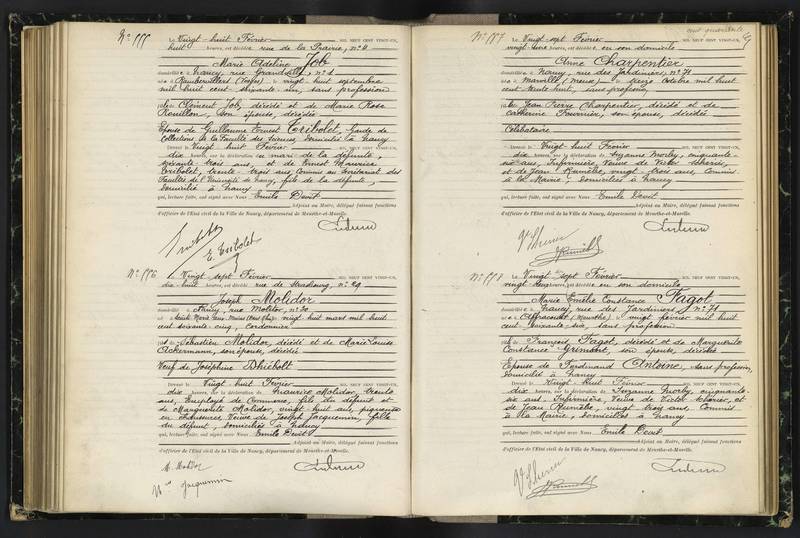 N° 555
Le Vingt-huit Février MIL NEUF CENT VINGT-UN,
huit heures, est décédée rue de la Prairie, n° 4
Marie Adeline Job
domiciliée à Nancy, rue Grandville, n° 1
née à Rambervillers (Vosges) le vingt huit septembre
mil huit cent soixante un, sans profession
fille de Clément Job, décédé et de Marie Rose
Rouillon, son épouse, décédée
Épouse de Guillaume Ernest Tribolet, Garde de
Collections de la Faculté des Sciences, domicilié à Nancy
Devant le Vingt huit Février MIL NEUF CENT VINGT-UN,
dix heures, sur la déclaration du mari de la défunte,
soixante trois ans, et de Ernest Maurice
Tribolet, trente-trois ans, Commis au Secrétariat des
Facultés de l'Université de Nancy, fils de la défunte,
domiciliés à Nancy
qui, lecture faite, ont signé avec Nous Emile Devit
Adjoint au Maire, délégué faisant fonctions
d'officier de l'Etat civil de la Ville de Nancy, département de Meurthe-et-Moselle.
E. Tribolet
N° 556
Le Vingt sept Février MIL NEUF CENT VINGT-UN,
dix-huit heures, est décédé rue de Strasbourg, n° 29
Joseph Molidor
domicilié à Nancy, rue Molitor, n° 30
vingt huit mars mil huit
cent soixante cinq, cordonnier
fils de Sébastien Molidor, décédé et de Marie Louise
Ackermann, son épouse, décédée
Veuf de Joséphine Sthiébolt
Devant le Vingt huit Février MIL NEUF CENT VINGT-UN,
dix heures, sur la déclaration de Maurice Molidor, trente
ans, Employé de Commerce, fils du défunt et
de Marguerite Molidor, vingt huit ans, piqueuse
en chaussures, Veuve de Joseph Jacquemin, fille
du défunt, domiciliés à Nancy
qui, lecture faite, ont signé avec Nous Emile Devit
Adjoint au Maire, délégué faisant fonctions
d'officier de l'Etat civil de la Ville de Nancy, département de Meurthe-et-Moselle.
M. Molidor
Jacquemin
cent quarante
N° 557
Le Vingt sept Février MIL NEUF CENT VINGT-UN,
heures, est décédée en son domicile
Anne Charpentier
domiciliée à Nancy, rue des Jardiniers, n° 71
née à Marville (Meuse) le treize Octobre mil huit
cent trente huit, sans profession
fille de Jean Pierre Charpentier, décédé et de
Catherine Fournier, son épouse, décédée
Célibataire
Devant le Vingt-huit Février MIL NEUF CENT VINGT-UN,
dix heures, sur la déclaration de Suzanne Morby, cinquante-
six ans, Infirmière, Veuve de Victor
et de Jean Rumèlie, vingt trois ans, Commis
à la Mairie, domiciliés à Nancy
qui, lecture faite, ont signé avec Nous Emile Devit
Adjoint au Maire, délégué faisant fonctions
d'officier de l'Etat civil de la Ville de Nancy, département de Meurthe-et-Moselle.
N° 558
Le Vingt sept Février MIL NEUF CENT VINGT-UN,
heures, est décédée en son domicile
Marie Emélie Constance Fagot
domiciliée à Nancy, rue des Jardiniers, n° 71
née à Affracourt (Meurthe) le vingt février mil huit
cent soixante-six, sans profession
fille de François Fagot, décédé et de Marguerite
Constance Grimont, son épouse, décédée
Epouse de Ferdinand Antoine, sans profession,
domicilié à Nancy
Devant le Vingt huit Février MIL NEUF CENT VINGT-UN,
dix heures, sur la déclaration de Suzanne Morby, cinquante-
six ans, Infirmière, Veuve de Victor et
de Jean Rumèlie, vingt trois ans, Commis
à la Mairie, domiciliés à Nancy
qui, lecture faite, ont signé avec Nous Emile Devit
Adjoint au Maire, délégué faisant fonctions
d'officier de l'Etat civil de la Ville de Nancy, département de Meurthe-et-Moselle.